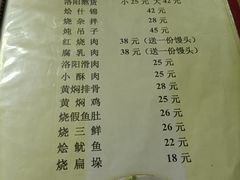 洛阳熬货 小 25 元 大 42 元
烩什锦 42 元
烧杂拌 28 元
炖吊子 45 元
红烧肉 38 元(送一份馒头)
腐乳肉 38 元(送一份馒头)
洛阳滑肉 25 元
小酥肉 25 元
黄焖排骨 28 元
黄焖鸡 25 元
烧假鱼肚 26 元
烧三鲜 26 元
烩鱿鱼 22 元
烧扁垛 18 元